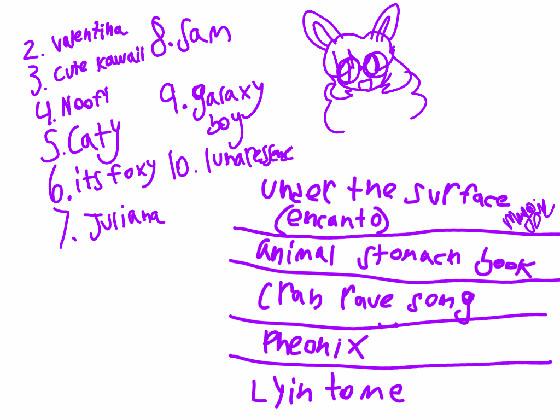 2. valentina
3. cute kawaii
4. Noofy
5. Caty
6. its foxy
7. Juliana
8. Sam
9. galaxy
boy
10. lunaressenc
under the surface
(encanto)
animal stomach book
crab rave song
Pheonix
Lyin to me